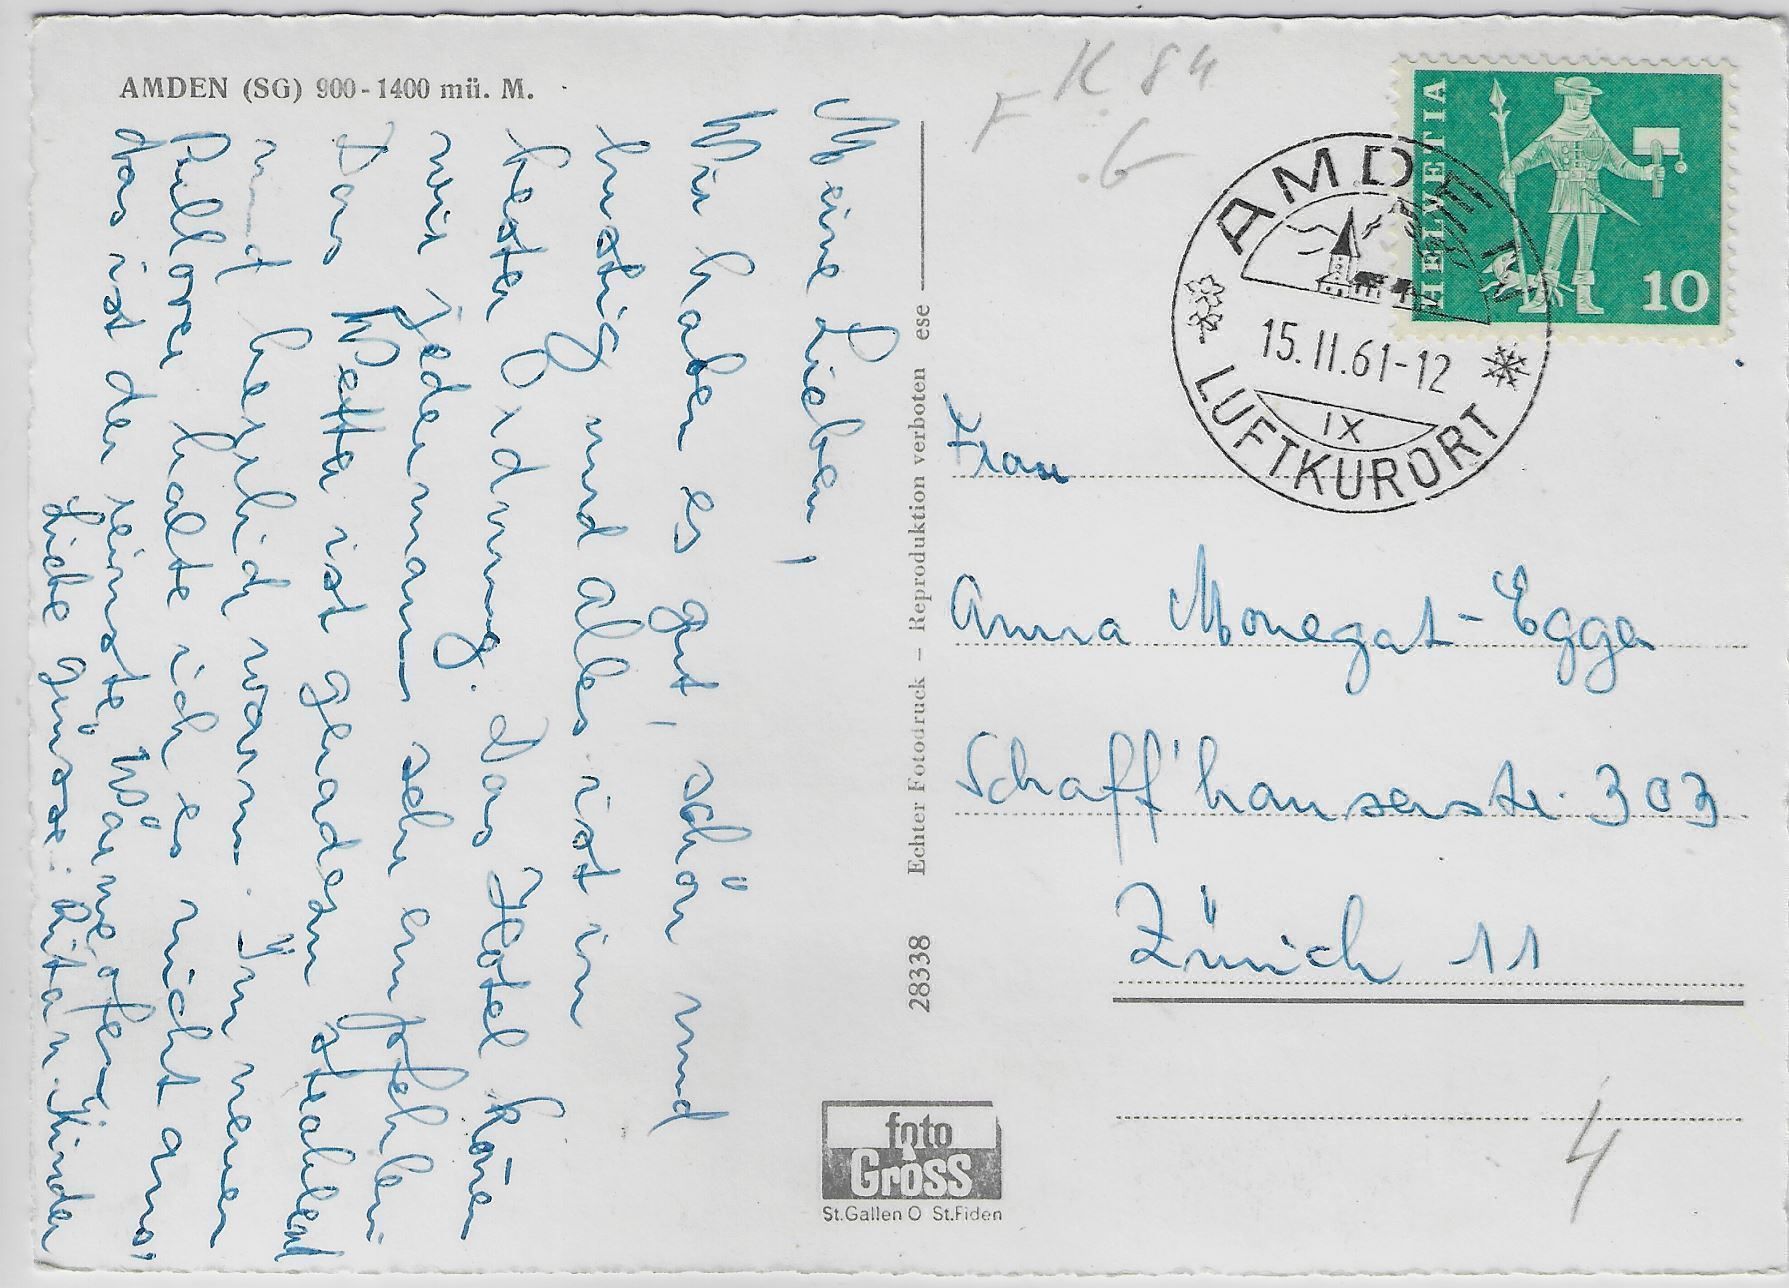 AMDEN (SG) 900-1400 mü. M.
Meine Lieben!
Wir haben es gut, schön und
lustig und alles ist in
bester Ordnung. Das Hotel könen
wir jedermann sehr empfehlen
Das Wetter ist geradezu strahlend
und herzlich warm. Im neuen
Pullover halte ich es nicht aus,
das ist der reinste Wärmeofen,
Liebe grüsse: Rita u. Kinder
28338 Echter Fotodruck – Reproduktion verboten ese
foto
Gross
St.Gallen O St.Fiden
K 84
F
.6
HELVETIA
10
AMDEN
15.II.61-12
IX
LUFTKURORT
Frau
Anna Monegat-Egger
Schaff'hauserstr. 303
Zürich 11
4